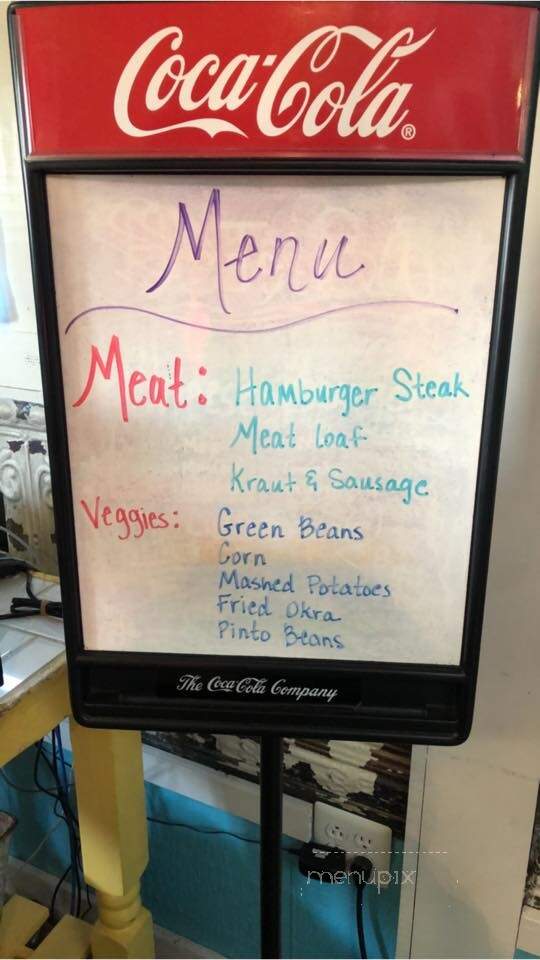 Coca-Cola®
Menu
Meat: Hamburger Steak
Meat loaf
Kraut & Sausage
Veggies: Green Beans
Corn
Mashed Potatoes
Fried Okra
Pinto Beans
The Coca-Cola Company
menupix